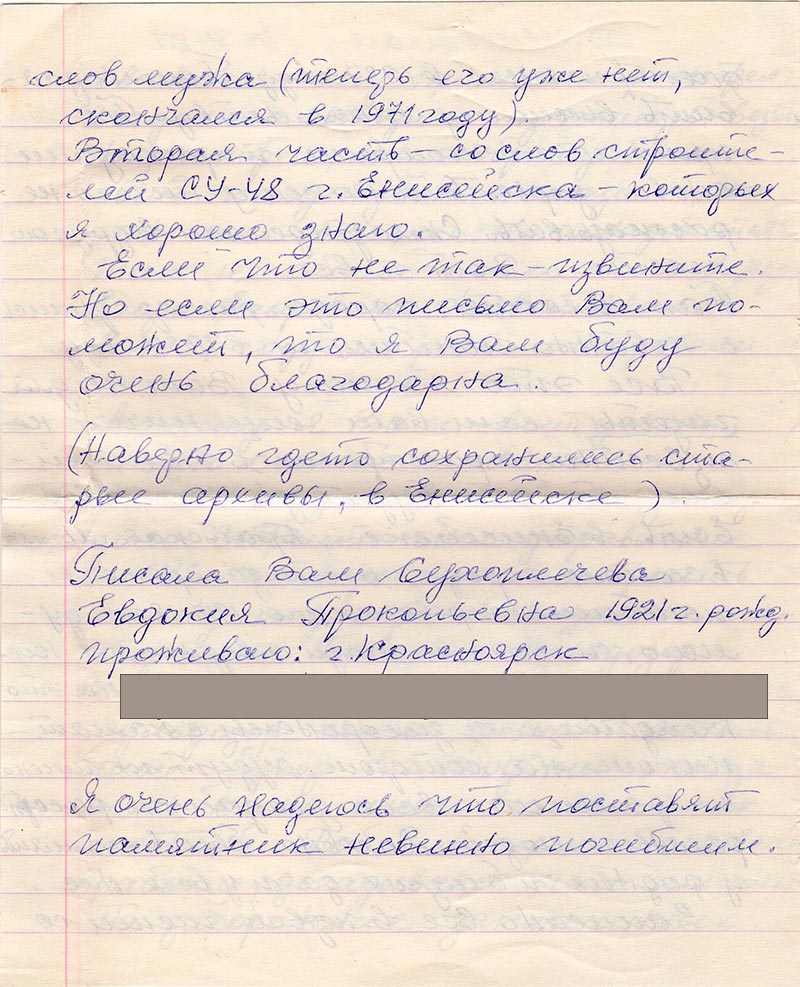 слов мужа (теперь его уже нет,
скончался в 1971 году).
Вторая часть – со слов строите-
лей СУ-48 г. Енисейска – которых
я хорошо знаю.
Если что не так – извините.
Но если это письмо Вам по-
может, то я Вам буду
очень благодарна..
(Наверно гдето сохранились ста-
рые архивы, в Енисейске).
Писала Вам Сухоплечева
Евдокия Прокопьевна 1921 г. рожд.
проживаю: г. Красноярск
Я очень надеюсь что поставят
памятник невинно погибшим.